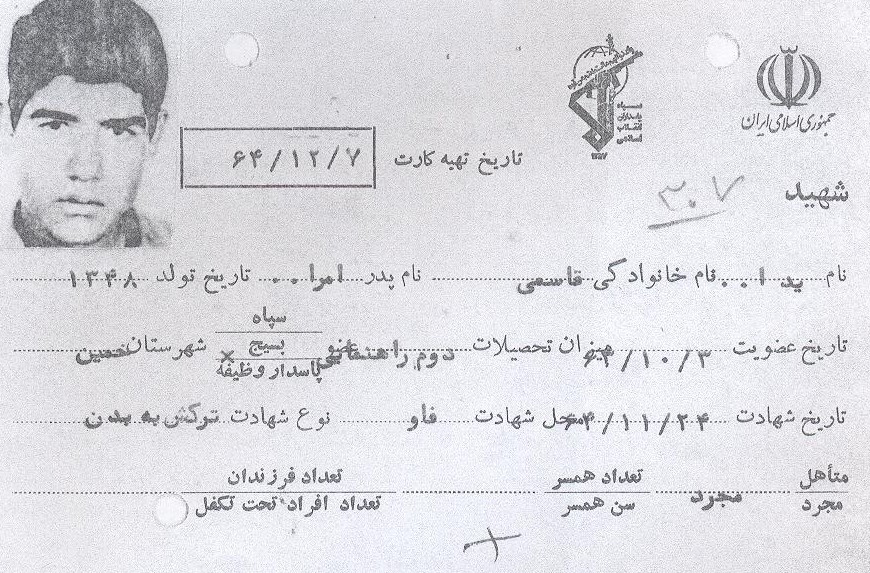 جمهوری اسلامی ایران
سپاه
پاسداران
انقلاب
اسلامی
۱۳۵۷
تاریخ تهیه کارت ۶۴/۱۲/۷
شهید ۳۰۷
نام ید ا.. نام خانوادگی قاسمی نام پدر امرا.. تاریخ تولد ۱۳۴۸
تاریخ عضویت ۶۴/۱۰/۳ میزان تحصیلات دوم راهنمایی عضو سپاه بسیج پاسدار وظیفه شهرستان خمین
تاریخ شهادت ۶۴/۱۱/۲۴ محل شهادت فاو نوع شهادت ترکش به بدن
متأهل مجرد مجرد تعداد همسر سن همسر تعداد فرزندان تعداد افراد تحت تکفل